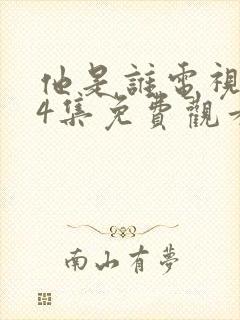 他是誰電視
4集免費觀看
南山有夢